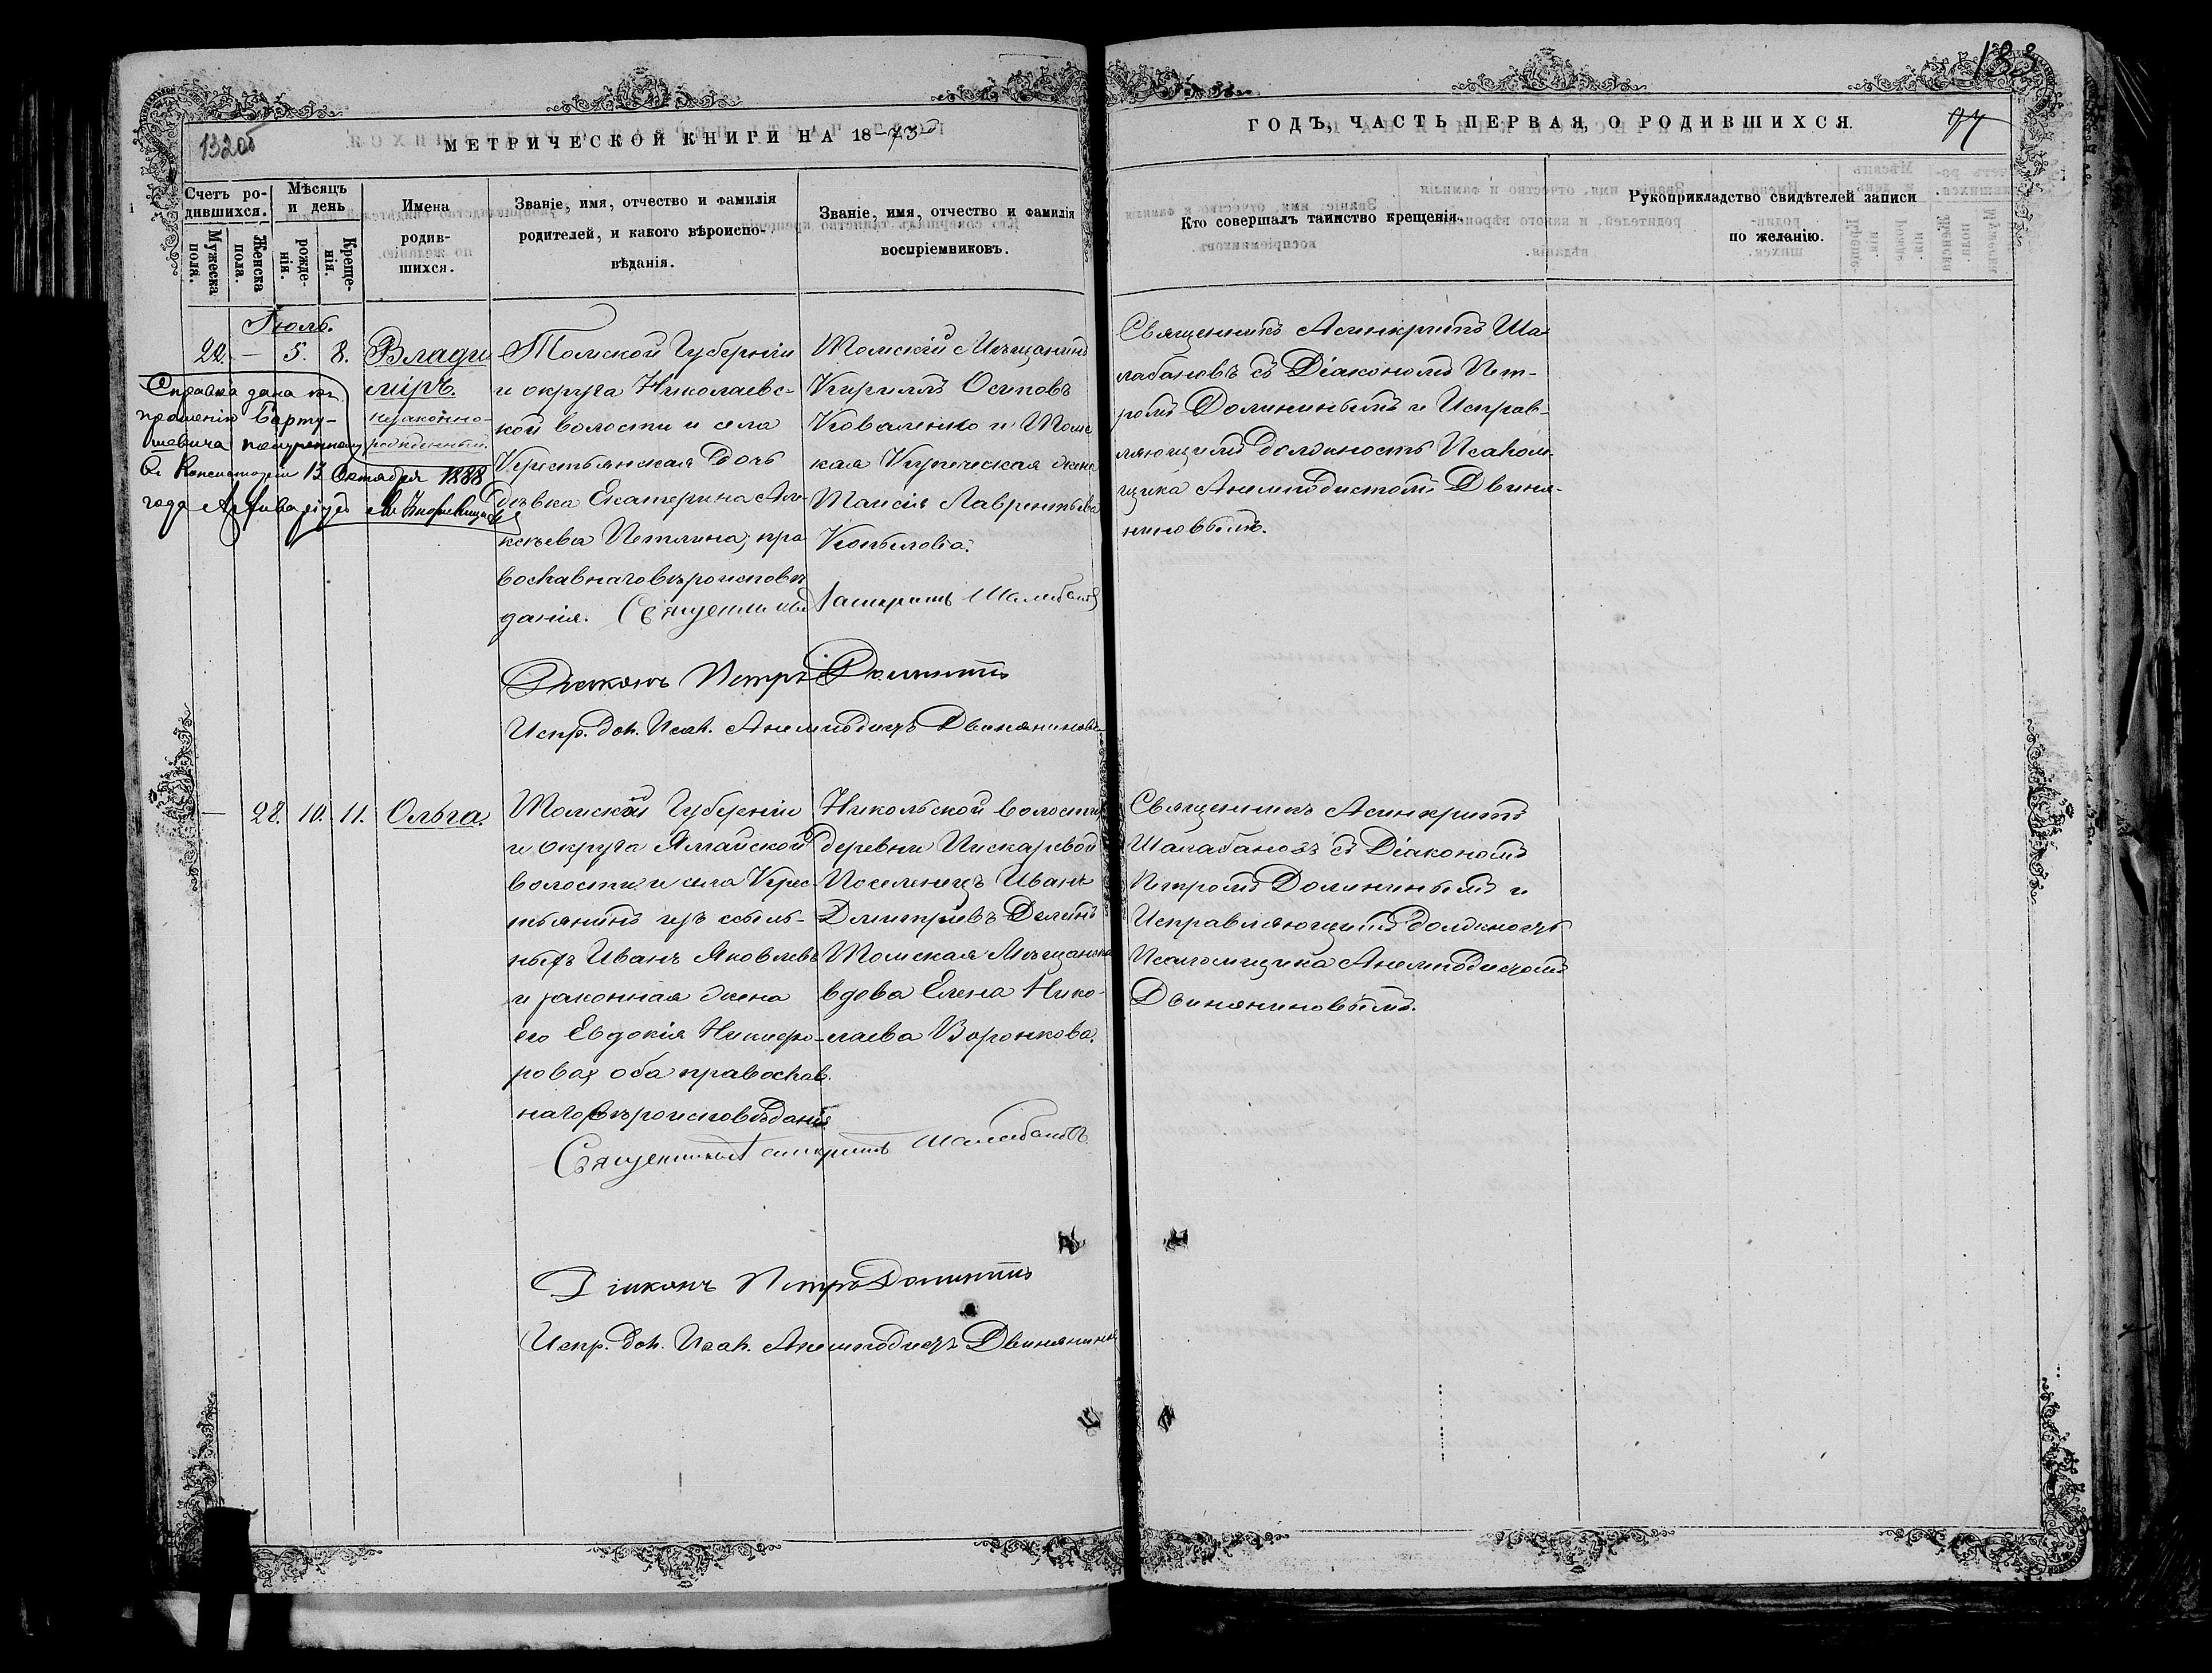 132об
133
97
МЕТРИЧЕСКОЙ КНИГИ НА 18-73й
ГОДЪ, ЧАСТЬ ПЕРВАЯ, О РОДИВШИХСЯ.
Счетъ ро-
дившихся.
Мужеска пола.
Женска пола.
Мѣсяцъ и день
рожде-
нія.
Креще-
нія.
Имена
родив-
шихся.
Званіе, имя, отчество и фамилія
родителей, и какого вѣроиспо-
вѣданія.
Званіе, имя, отчество и фамилія
воспріемниковъ.
Кто совершалъ таинство крещенія.
Рукоприкладство свидѣтелей записи
по желанію.
Іюль.
22. — 5. 8.
Влади
міръ.
незаконно-
рожденный.
Справка дана по
прошенію Барту-
шевича
Консисторіи 13 Октября 1888
года Архиваріусъ
Томской Губерніи
и округа Николаевс-
кой волости и села
Крестьянская дочь
дѣвка Екатерина Але-
ксѣева Петлина, пра
вославнаго вѣроисповѣ
данія. Священникъ Асинкритъ Шалабановъ
Діаконъ Петръ Долининъ
Испр. дол. Псал. Анемподистъ Двиняниновъ
Томскій Мѣщанинъ
Кириллъ Осиповъ
Коваленко и Томс
кая Купеческая жена
Таисія Лаврентьева
Копылова.
Священникъ Асинкритъ Ша
лабановъ съ Діакономъ Пет-
ромъ Долининымъ и Исправ-
ляющимъ должность Псалом-
щика Анемподистомъ Двиня-
ниновымъ.
— 28. 10. 11. Ольга.
Томской Губерніи
и округа Ямайской
волости и села Крес-
тьянинъ изъ ссыль-
ныхъ Иванъ Яковлевъ
и законная жена
его Евдокія Никифо-
рова, оба православ.
наго вѣроисповѣданія
Священникъ Асинкритъ Шалабановъ
Діаконъ Петръ Долининъ
Испр. дол. Псал. Анемподистъ Двиняниновъ
Никольской волости
деревни Пискаревой
Поселенецъ Иванъ
Дмитріевъ
Томская Мѣщанская
вдова Елена Нико-
лаева Воронкова.
Священникъ Асинкритъ
Шалабановъ съ Діакономъ
Петромъ Долининымъ и
Исправляющимъ должность
Псаломщика Анемподистомъ
Двиняниновымъ.